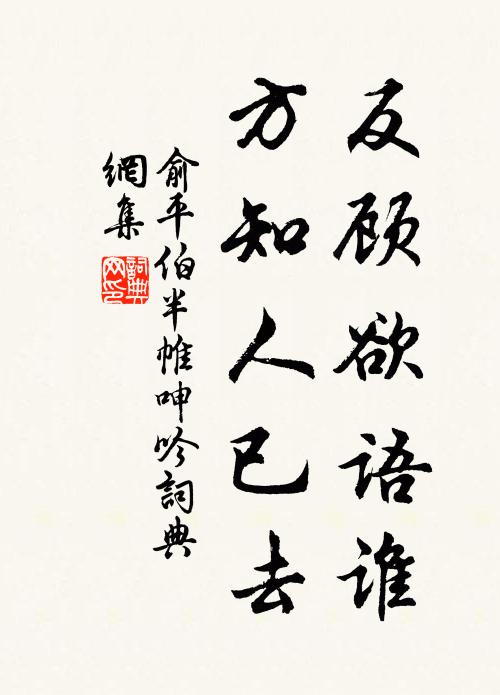 反顾欲语谁
方知人已去
俞平伯半帷呻吟詞典
網集
詞典
网印